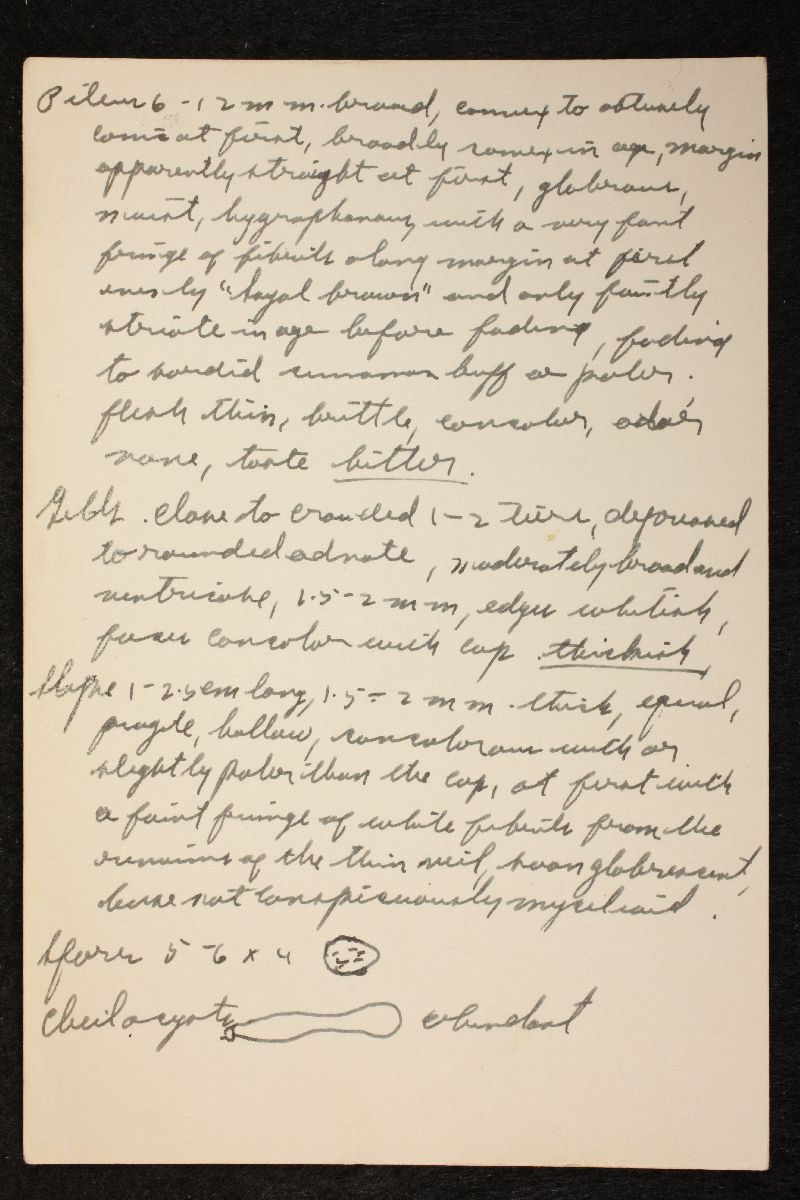 Pileus 6-12 mm. broad, convex to obtusely
conic at first, broadly convex in age, margin
apparently straight at first, glabrous,
moist, hygrophanous, with a very faint
fringe of fibrils along margin at first
evenly "hazel brown" and only faintly
striate in age before fading, fading
to sordid cinnamon buff or paler.
flesh thin, brittle, concolor, odor
none, taste bitter.
Gills close to crowded 1-2 tiers, depressed
to rounded adnate, moderately broad and
ventricose, 1.5-2 mm, edges whitish,
faces concolor with cap. thickish,
Stipe 1-2.5 cm long, 1.5-2 mm. thick, equal,
fragile, hollow, concolorous with or
slightly paler than the cap, at first with
a faint fringe of white fibrils from the
remains of the thin veil, soon glabrescent,
base not conspicuously myceloid.
Spores 5-6 x 4
Cheilocysts abundant